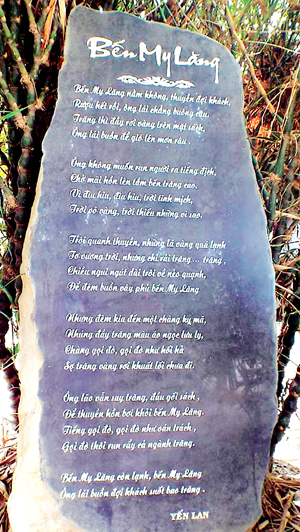 Bến My Lăng
Bến My Lăng nằm không, thuyền đợi khách,
Rượu hết rồi, ông lái chẳng buông câu.
Trăng thì đầy rơi vàng trên mặt sách,
Ông lái buồn để gió lén mơn râu.
Ông không muốn run người ra tiếng địch,
Chở mãi hồn lên tắm bến trăng cao.
Vì đìu hiu, đìu hiu, trời tĩnh mịch,
Trời võ vàng, trời thiếu những vì sao.
Trôi quanh thuyền, những lá vàng quá lạnh
Tơ vương trời, nhưng chỉ rải trăng... trăng,
Chiều ngui ngút dài trôi về nẻo quạnh,
Để đêm buồn vây phủ bến My Lăng
Nhưng đêm kia đến một chàng kỵ mã,
Nhúng đầy trăng màu áo ngọc lưu ly,
Chàng gọi đò, gọi đò như hối hả
Sợ trăng vàng rơi khuất lối chưa đi.
Ông lão vẫn say trăng, đầu gối sách,
Để thuyền hồn bơi khỏi bến My Lăng.
Tiếng gọi đò, gọi đò như oán trách,
Gọi đò thôi run rẩy cả ngành trăng.
Bến My Lăng còn lạnh, bến My Lăng
Ông lái buồn đợi khách suốt bao trăng.
YẾN LAN